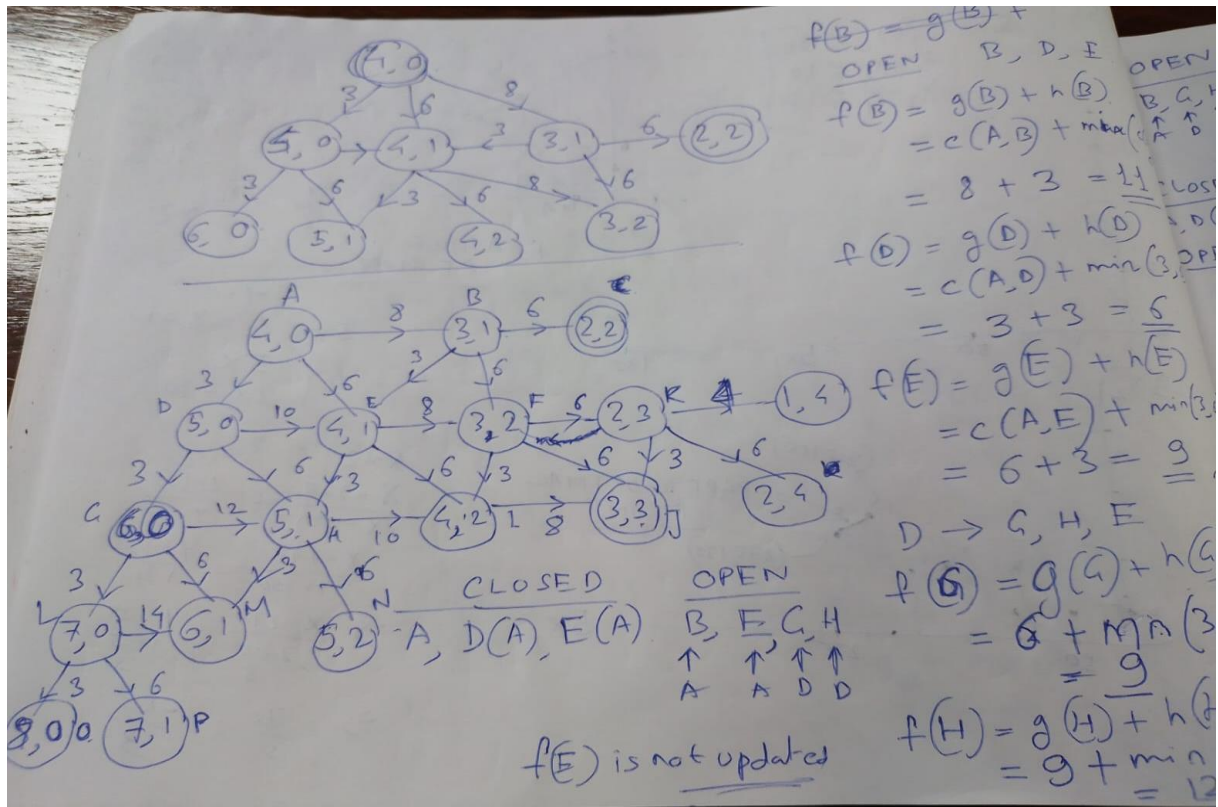 4,0
3 6 8
5,0 4,1 3 3,1 6 2,2
3 6 3 6 8 6
6,0 5,1 4,2 3,2
A B C
4,0 8 3,1 6 2,2
3 6 3 6
D E F K
5,0 10 4,1 8 3,2 6 2,3 4 1,4
3 6 3 6 3 6 3 6
G H I J
6,0 12 5,1 10 4,2 8 3,3 2,4
3 6 3 6
L M N
7,0 14 6,1 5,2
3 6
8,0 O 7,1 P
CLOSED
A, D(A), E(A)
OPEN
B, E, G, H
↑ ↑ ↑ ↑
A A D D
f(E) is not updated
f(B) = g(B) +
OPEN B, D, E
f(B) = g(B) + h(B)
= c(A,B) +
= 8 + 3 = 11
f(D) = g(D) + h(D)
= c(A,D) + min(3,
= 3 + 3 = 6
f(E) = g(E) + h(E)
= c(A,E) + min(3,
= 6 + 3 = 9
D → G, H, E
f(G) = g(G) + h(G
= 6 + (3
= 9
f(H) = g(H) + h(
= 9 + min
= 12
OPEN
B, G, H
↑ ↑
A D
CLOSE
D(
OPE